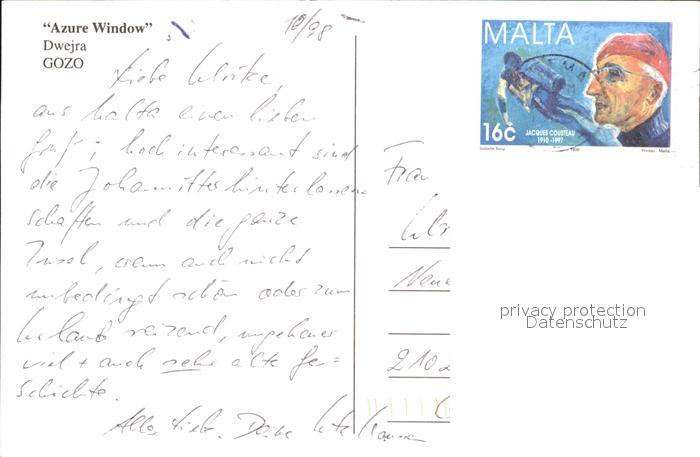 "Azure Window"
Dwejra
GOZO
10/98
Liebe Ulrike,
aus Malta einen lieben
Gruß; hochinteressant sind
die Johannitterhinterlassen
schaften und die ganze
Insel, wenn auch nicht
unbedingt schön oder zum
Urlaub reizend, ungeheuer
viel + auch sehr alte Ge=
schichte.
Alles Liebe. Deine Ute
MALTA
16c
JACQUES COUSTEAU
1910-1997
Frau
Ulr
Neue
210
privacy protection
Datenschutz